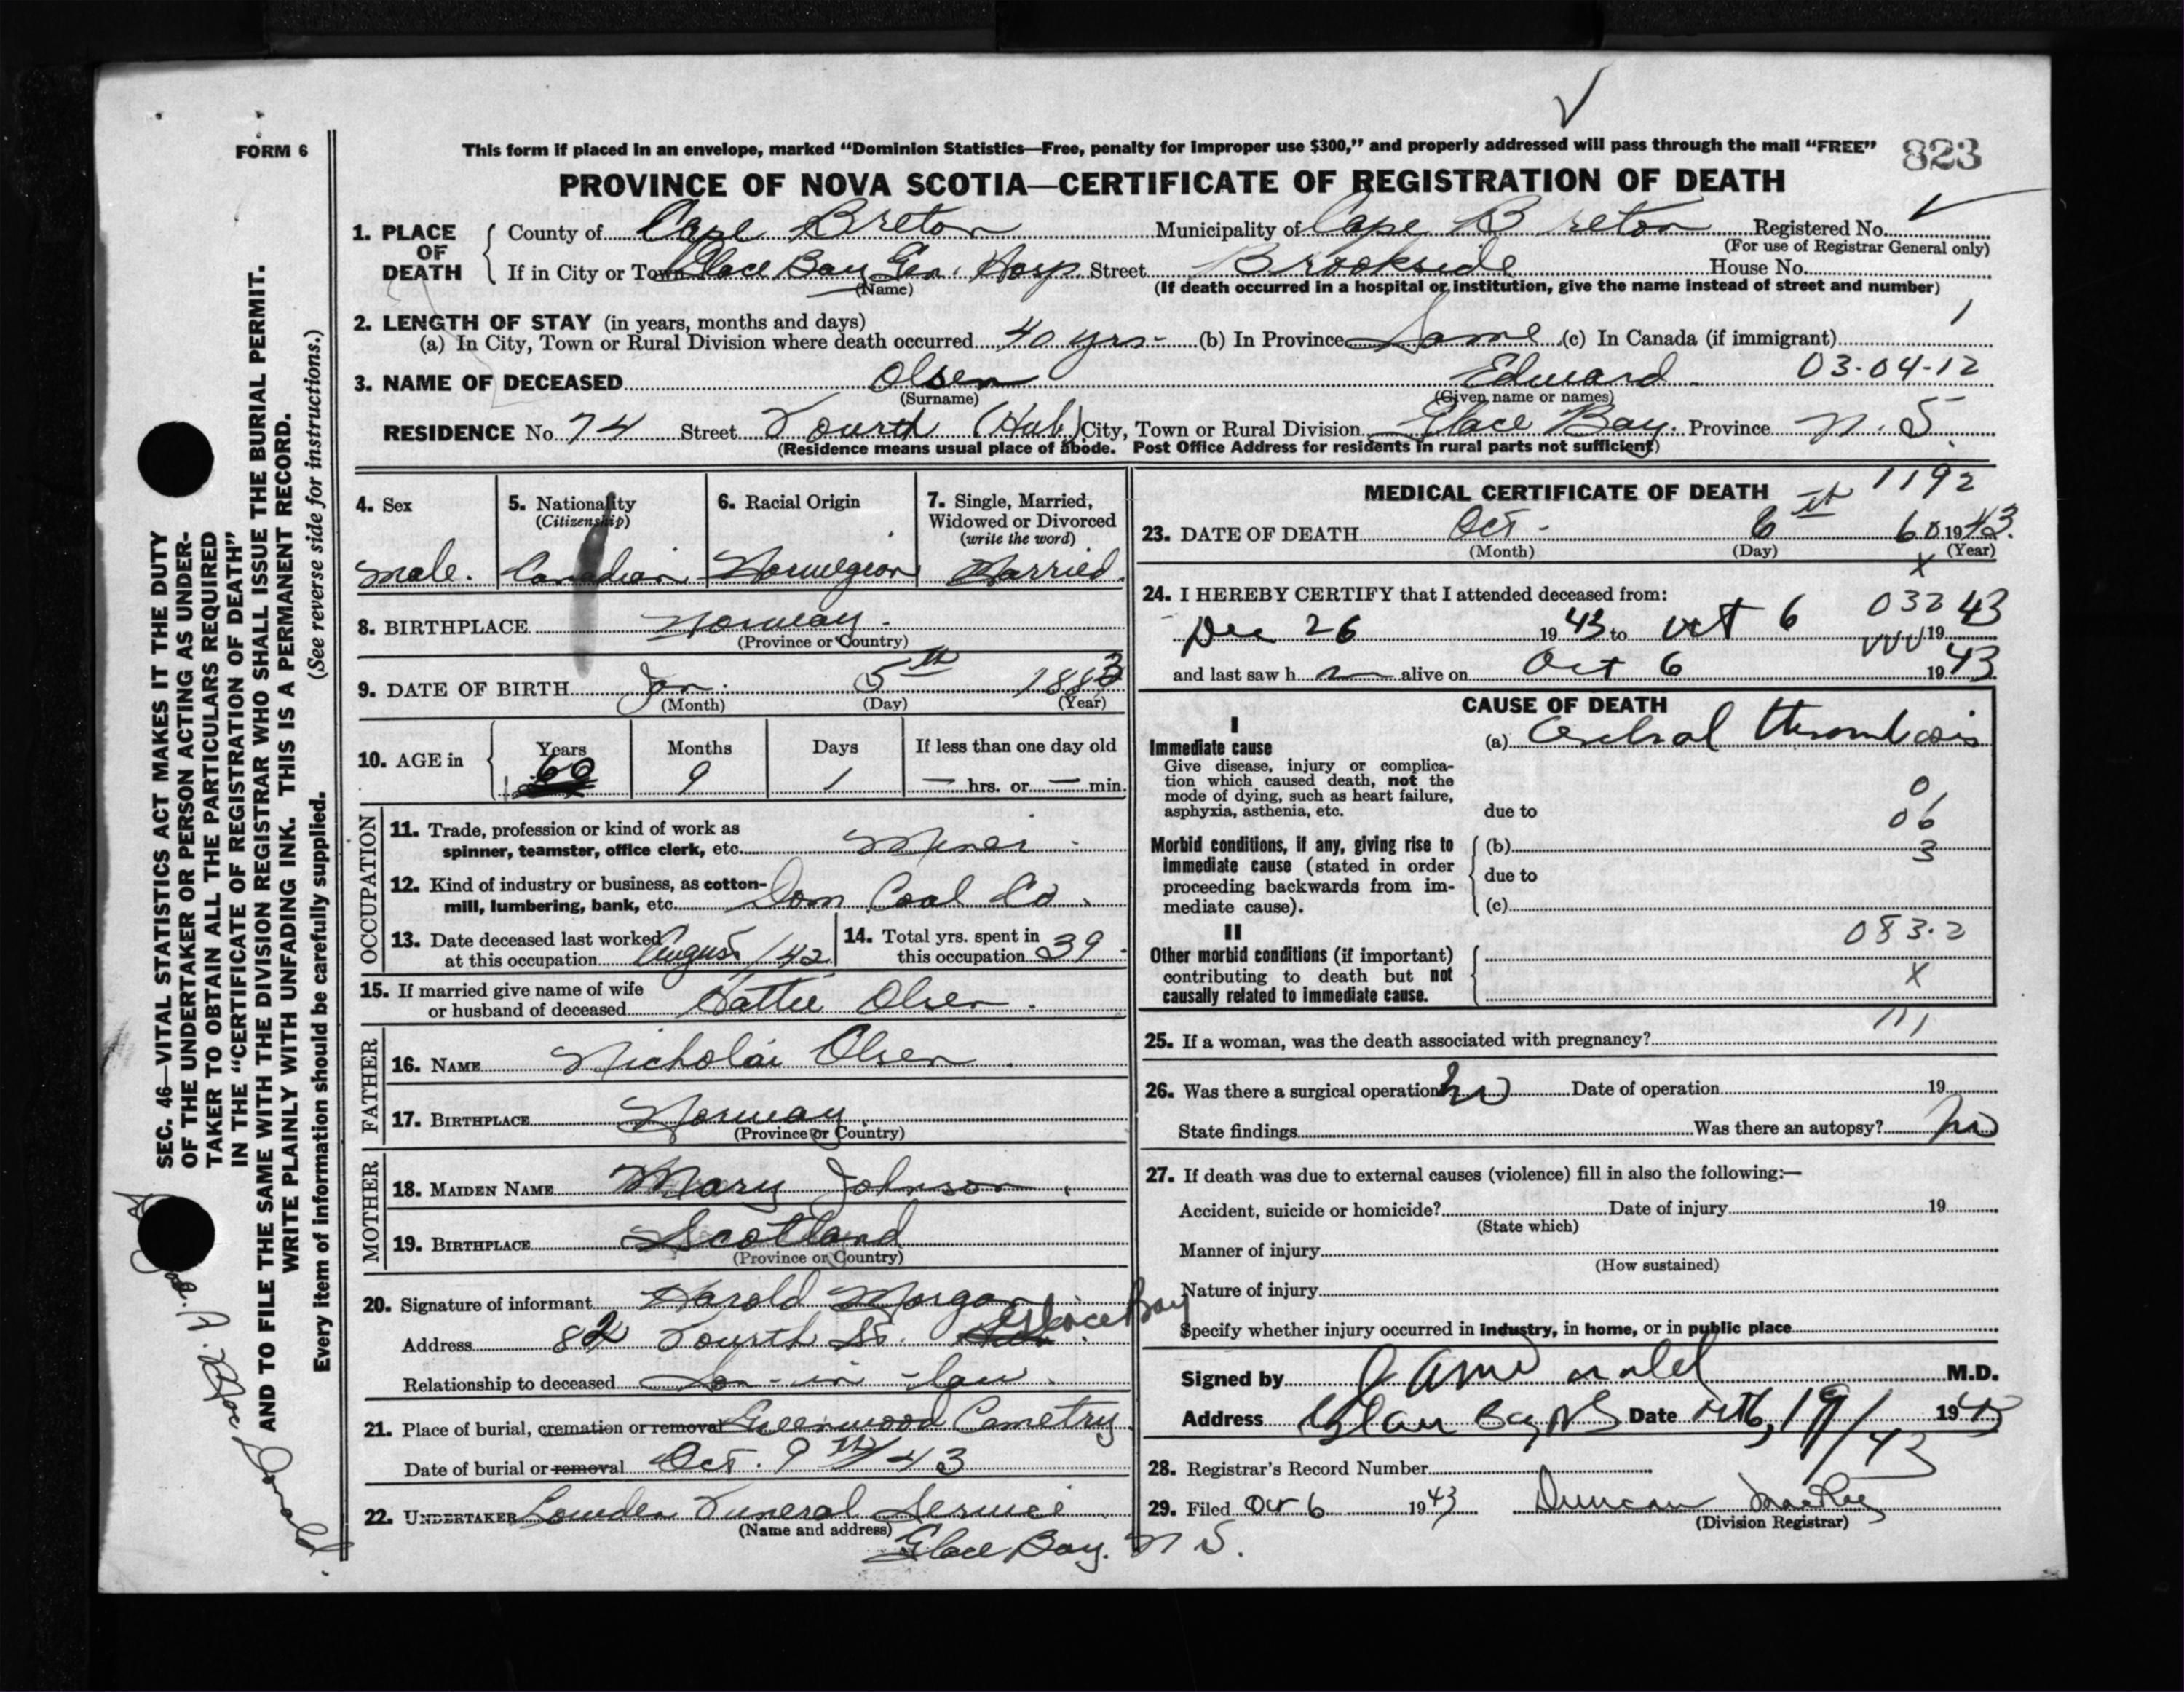 FORM 6
This form if placed in an envelope, marked “Dominion Statistics—Free, penalty for improper use $300,” and properly addressed will pass through the mail “FREE”
823
PROVINCE OF NOVA SCOTIA—CERTIFICATE OF REGISTRATION OF DEATH
1. PLACE OF DEATH
County of Cape Breton Municipality of Cape Breton Registered No.
(For use of Registrar General only)
If in City or Town Glace Bay Gen. Hosp Street Brookside House No.
(Name) (If death occurred in a hospital or institution, give the name instead of street and number)
2. LENGTH OF STAY (in years, months and days)
(a) In City, Town or Rural Division where death occurred 40 yrs. (b) In Province Same (c) In Canada (if immigrant) 1
3. NAME OF DECEASED Olsen Edward 03-04-12
(Surname) (Given name or names)
RESIDENCE No. 74 Street Fourth (Hub) City, Town or Rural Division Glace Bay. Province N. S.
(Residence means usual place of abode. Post Office Address for residents in rural parts not sufficient)
4. Sex 5. Nationality (Citizenship) 6. Racial Origin 7. Single, Married, Widowed or Divorced (write the word)
Male. Canadian Norwegian Married.
8. BIRTHPLACE Norway.
(Province or Country)
9. DATE OF BIRTH Jan. 5th 1883
(Month) (Day) (Year)
10. AGE in Years Months Days If less than one day old
60 9 1 — hrs. or — min.
OCCUPATION
11. Trade, profession or kind of work as
spinner, teamster, office clerk, etc. Miner
12. Kind of industry or business, as cotton-
mill, lumbering, bank, etc. Dom Coal Co.
13. Date deceased last worked
at this occupation August/42
14. Total yrs. spent in
this occupation 39
15. If married give name of wife
or husband of deceased Hattie Olsen.
FATHER
16. NAME Nicholai Olsen
17. BIRTHPLACE Norway
(Province or Country)
MOTHER
18. MAIDEN NAME Mary Johnson
19. BIRTHPLACE Scotland
(Province or Country)
20. Signature of informant Harold Morgan
Address 82 Fourth St. Glace Bay
Relationship to deceased Son-in-law.
21. Place of burial, cremation or removal Greenwood Cemetry
Date of burial or removal Oct. 9th/43
22. UNDERTAKER Lowden Funeral Service
(Name and address)
Glace Bay. N S.
MEDICAL CERTIFICATE OF DEATH 1192
23. DATE OF DEATH Oct. 6th 60 1943.
(Month) (Day) (Year)
x
24. I HEREBY CERTIFY that I attended deceased from:
032
Dec 26 1943 to Oct 6 1943
and last saw h m alive on Oct 6 1943
CAUSE OF DEATH
I
Immediate cause
Give disease, injury or complica-
tion which caused death, not the
mode of dying, such as heart failure,
asphyxia, asthenia, etc.
(a) Cerebral thrombosis
due to
0
06
3
Morbid conditions, if any, giving rise to
immediate cause (stated in order
proceeding backwards from im-
mediate cause).
(b)
due to
(c)
II
083.2
Other morbid conditions (if important)
contributing to death but not
causally related to immediate cause.
X
111
25. If a woman, was the death associated with pregnancy?
26. Was there a surgical operation? No Date of operation 19
State findings Was there an autopsy? No
27. If death was due to external causes (violence) fill in also the following:—
Accident, suicide or homicide? Date of injury 19
(State which)
Manner of injury
(How sustained)
Nature of injury
Specify whether injury occurred in industry, in home, or in public place
Signed by M.D.
Address Glace Bay NS Date Oct 6, 19/43 1943
28. Registrar's Record Number
29. Filed Oct 6 1943 Duncan MacRae
(Division Registrar)
SEC. 46—VITAL STATISTICS ACT MAKES IT THE DUTY
OF THE UNDERTAKER OR PERSON ACTING AS UNDER-
TAKER TO OBTAIN ALL THE PARTICULARS REQUIRED
IN THE “CERTIFICATE OF REGISTRATION OF DEATH”
AND TO FILE THE SAME WITH THE DIVISION REGISTRAR WHO SHALL ISSUE THE BURIAL PERMIT.
WRITE PLAINLY WITH UNFADING INK. THIS IS A PERMANENT RECORD.
Every item of information should be carefully supplied. (See reverse side for instructions.)